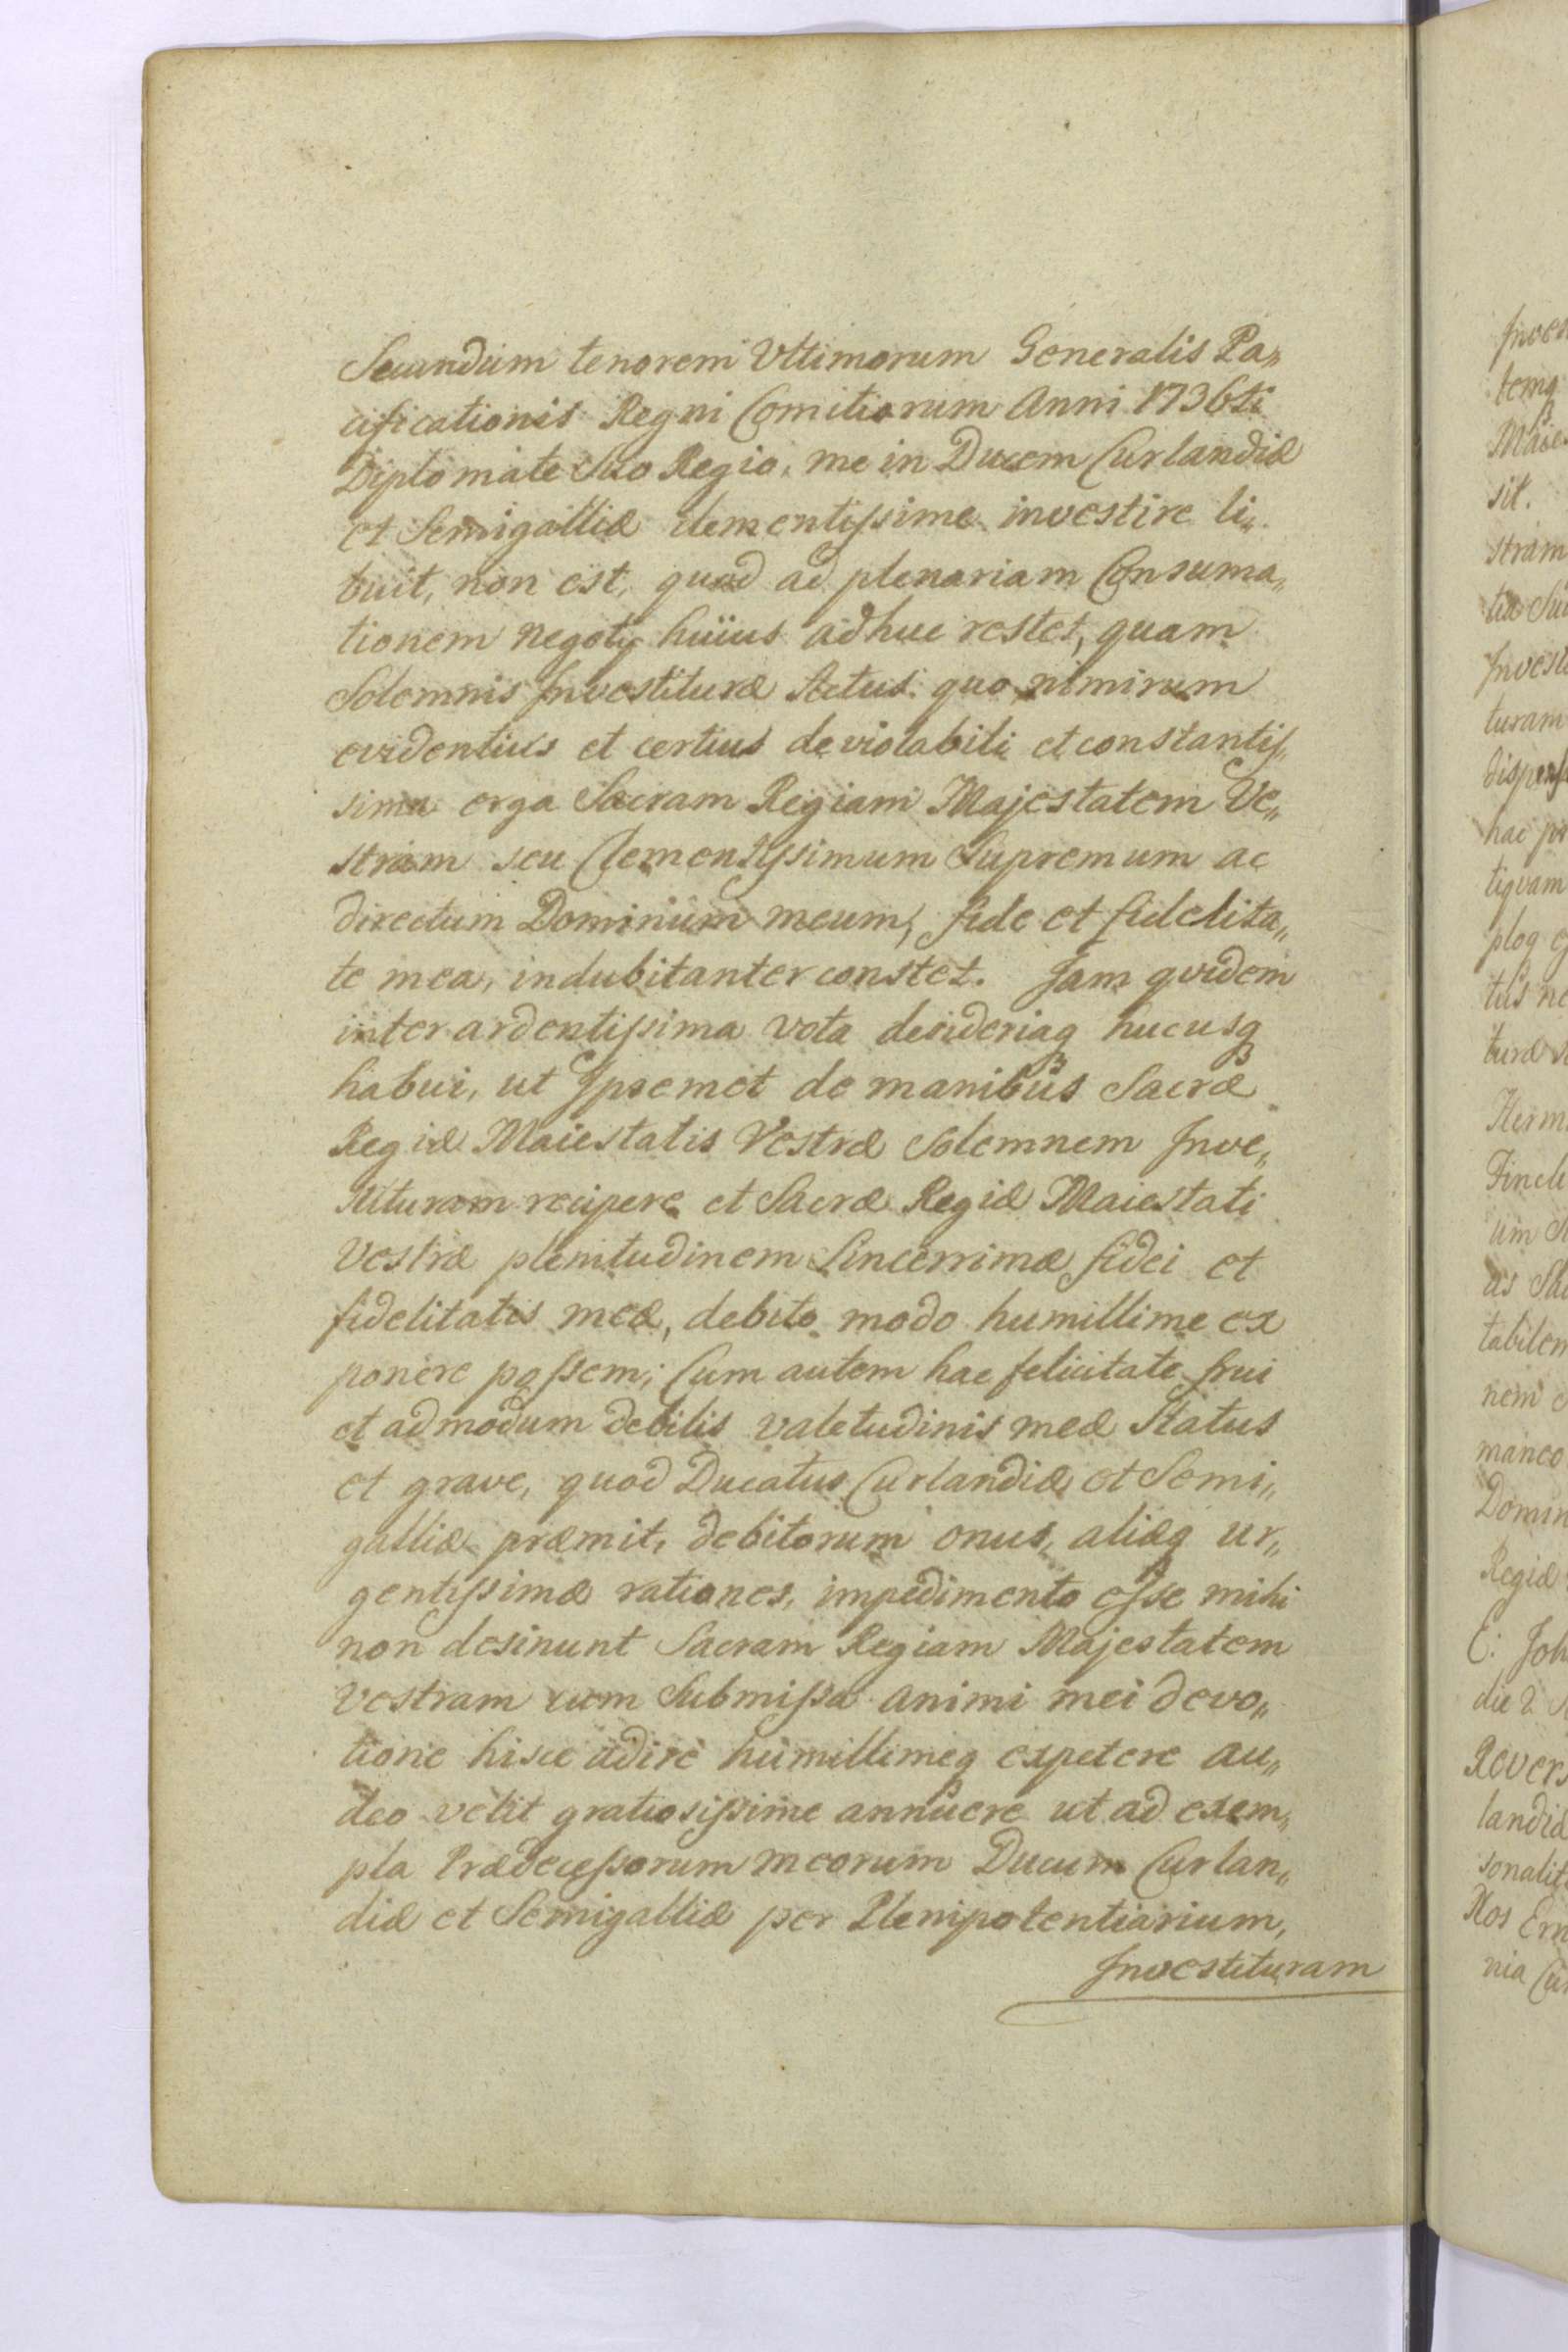 Secundum tenorem Vltimorum Generalis Pa„
cificationis Regni Comitiorum Anni 1736ti
Diplomate Suo Regio, me in Ducem Curlandiæ
et Semigalliæ clementissime investire li„
buit, non est, quod ad plenariam Consuma„
tionem negotÿ huius adhuc restet, quam
Solemnis Investituræ Actus: quo nimirum
evidentius et certius de violabili et constantis„
sima erga Sacram Regiam Majestatem Ve„
stram seu Clementissimum Supremum ac
directum Dominium meum, fide et fidelita„
te mea, indubitanter constet. Jam qvidem
inter ardentissima vota desideriaq hucusq
habui, ut Ipsemet de manibus Sacræ
Regiæ Maiestatis Vestræ Solemnem Inve„
stituram recipere et Sacræ Regiæ Maiestati
Vestræ plenitudinem Sincerrimæ fidei et
fidelitatis meæ, debito modo humillime ex
ponere possem; Cum autem hac felicitate frui
et admodum debilis valetudinis meæ Status
et grave, quod Ducatus Curlandiæ et Semi„
galliæ præmit, debitorum onus, aliæq ur„
gentissimæ rationes, impedimento esse mihi
non desinunt Sacram Regiam Majestatem
Vestram cum Submissa animi mei devo„
tione hisce adire humillimeq expetere au„
deo velit gratiosissime annuere ut ad exem„
pla Prædecessorum meorum Ducum Curlan„
diæ et Semigalliæ per Plenipotentiarium,
Investituram